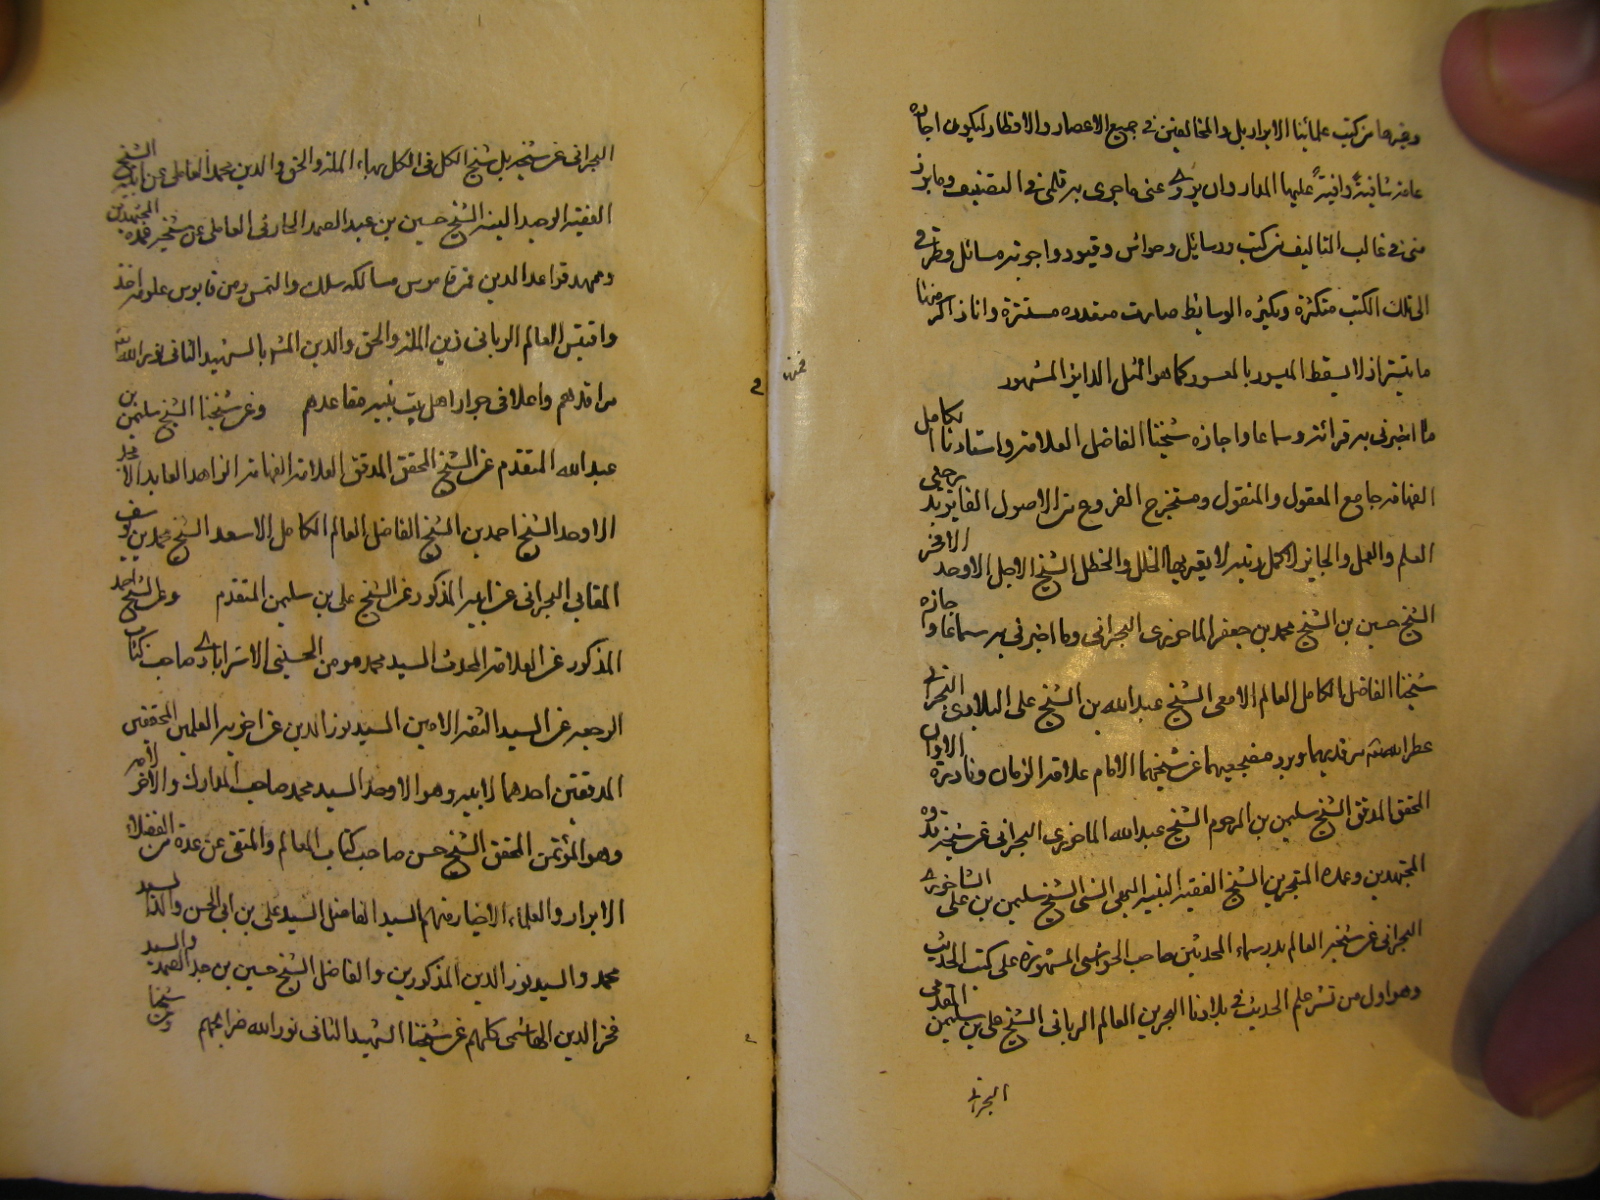 وغيرها من كتب علمائنا الابرار بل والمخالفين في جميع الاعصار والاقطار ليكون اجازة
عامة شافية وافية عليها المدار وان يروي عني ما جرى به قلمي في التصنيف وما برز
مني في قالب التأليف من كتب ورسائل وحواش وقيود واجوبة مسائل وطرقي
الى تلك الكتب متكثرة وبكثرة الوسائط صارت متعددة منتشرة وانا ذاكر منها
ما تيسر اذ لا يسقط الميسور بالمعسور كما هو المثل الداير المشهور
ما اخبرني به قرائة وسماعا واجازة شيخنا الفاضل العلامة واستادنا الكامل
الفهامة جامع المعقول والمنقول ومستخرج الفروع من الاصول الفايز بدرجتي
العلم والعمل والحايز لاكمل رتبة لا يعتريها الخلل والخطل الشيخ الاجل الاوحد الافخر
الشيخ حسين بن الشيخ محمد بن جعفر الماحوزي البحراني وما اخبرني به سماعا واجازة
شيخنا الفاضل الكامل العالم الالمعي الشيخ عبدالله بن الشيخ علي البلادي البحراني
عطر الله مرقديهما وبرد مضجعيهما عن شيخهما الامام علامة الزمان ونادرة الاوان
المحقق المدقق الشيخ سليمن بن المرحوم الشيخ عبدالله الماحوزي البحراني عن شيخه قدوة
المجتهدين وعمدة المتبحرين الشيخ الفقيه النبيه الشيخ سليمن بن علي الشاخوري
البحراني عن شيخه العالم بدر سماء المحدثين صاحب الحواشي المشهورة على كتب الحديث
وهو اول من نشر علم الحديث في بلادنا البحرين العالم الرباني الشيخ علي بن سليمن القدمي
البحراني
البحراني عن شيخه بل شيخ الكل في الكل بهاء الملة والحق والدين محمد العاملي عن ابيه الشيخ
الفقيه الوحيد الشيخ حسين بن عبد الصمد الحارثي العاملي عن شيخه عمدة المجتهدين
وممهد قواعد الدين من قاموس مسالكه سلك والتمس ومن قابوس علومه اخذ
واقتبس العالم الرباني زين الملة والحق والدين المشهر بالشهيد الثاني نور الله تعالى
مراقدهم واعلا في جوار اهل بيت نبيه مقاعدهم وعن شيخنا الشيخ سليمن بن
عبدالله المتقدم عن الشيخ المحقق المدقق العلامة الفهامة الزاهد العابد الامجد
الاوحد الشيخ احمد بن الشيخ الفاضل العالم الكامل الاسعد الشيخ محمد بن يوسف
المقابي البحراني عن ابيه المذكور عن الشيخ علي بن سليمن المتقدم وعن الشيخ احمد
المذكور عن العلامة المحدث السيد محمد مومن الحسيني الاسترابادي صاحب كتاب
الرجعة عن السيد الثقة الامين السيد نور الدين عن اخويه العلمين المحققين
المدققين احدهما لابيه وهو الاوحد السيد محمد صاحب المدارك والآخر لامه
وهو المؤتمن المحقق الشيخ حسن صاحب كتاب المعالم والمنتقى عن عدة من الفضلاء
الابرار والعلماء الاخيار منهم السيد الفاضل السيد علي بن ابي الحسن والد السيد
محمد والسيد نور الدين المذكورين والفاضل الشيخ حسين بن عبد الصمد والسيد
فخر الدين الهاشمي كلهم عن شيخنا الشهيد الثاني نور الله ضرايحهم وعن شيخنا